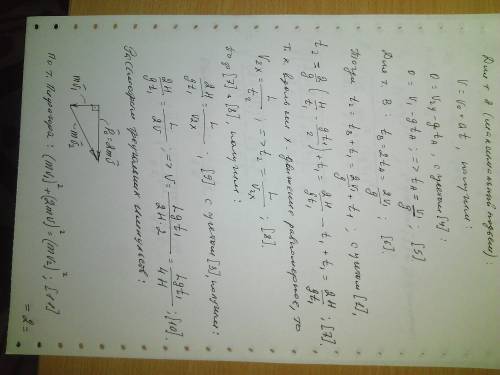 Для т. В (максимальный подъем):
V = V₀ + at, получим:
0 = V₁ - gt_A с учетом [4]:
0 = V₁ - gt_A; => t_A = V₁/g; [5]
Для т. В: t_B = 2t_A = 2V₁/g; [6].
Тогда t₂ = t_B + t₁ = 2V₁/g + t₁; с учетом [2],
t₂ = 2/g (H/t₁ - gt₁/2) + t₁ = 2H/gt₁ - t₁ + t₁ = 2H/gt₁; [7].
Т.к. вдоль оси X движение равномерное, то
V₂ₓ = L/t₂; => t₂ = L/V₂ₓ; [8].
[7] и [8], получим:
2H/gt₁ = L/V₂ₓ; [9] с учетом [3] получим:
2H/gt₁ = L/2V; => V = Lgt₁/2H·2 = Lgt₁/4H; [10].
Рассмотрим треугольник импульсов:
mV₁
P₂ = 2mV
mV₂
По т. Пифагора: (mV₁)² + (2mV)² = (mV₂)²; [11]
= 2 =